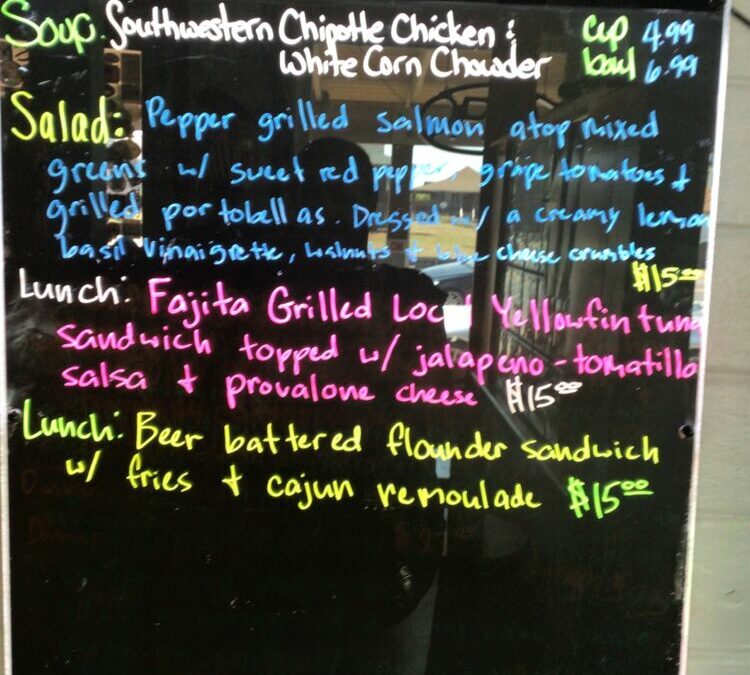 Soup: Southwestern Chipotle Chicken & cup 4.99
White Corn Chowder bowl 6.99
Salad: Pepper grilled salmon atop mixed
greens w/ sweet red pepper, grape tomatoes +
grilled portobellas. Dressed w/ a creamy lemon
basil vinaigrette, walnuts + blue cheese crumbles
$15.00
Lunch: Fajita Grilled Local Yellowfin tuna
sandwich topped w/ jalapeno-tomatillo
salsa + provalone cheese $15.00
Lunch: Beer battered flounder sandwich
w/ fries + cajun remoulade $15.00